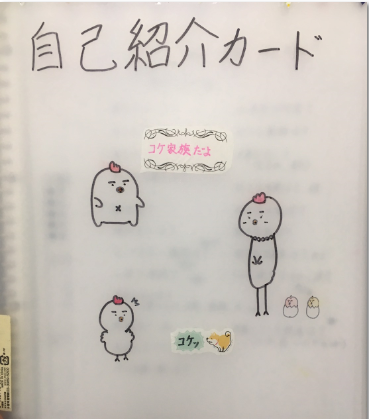 自己紹介カード
コケ家族だよ
コケッ